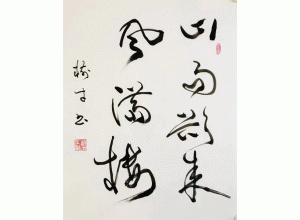 山雨欲来
风满楼
树才书